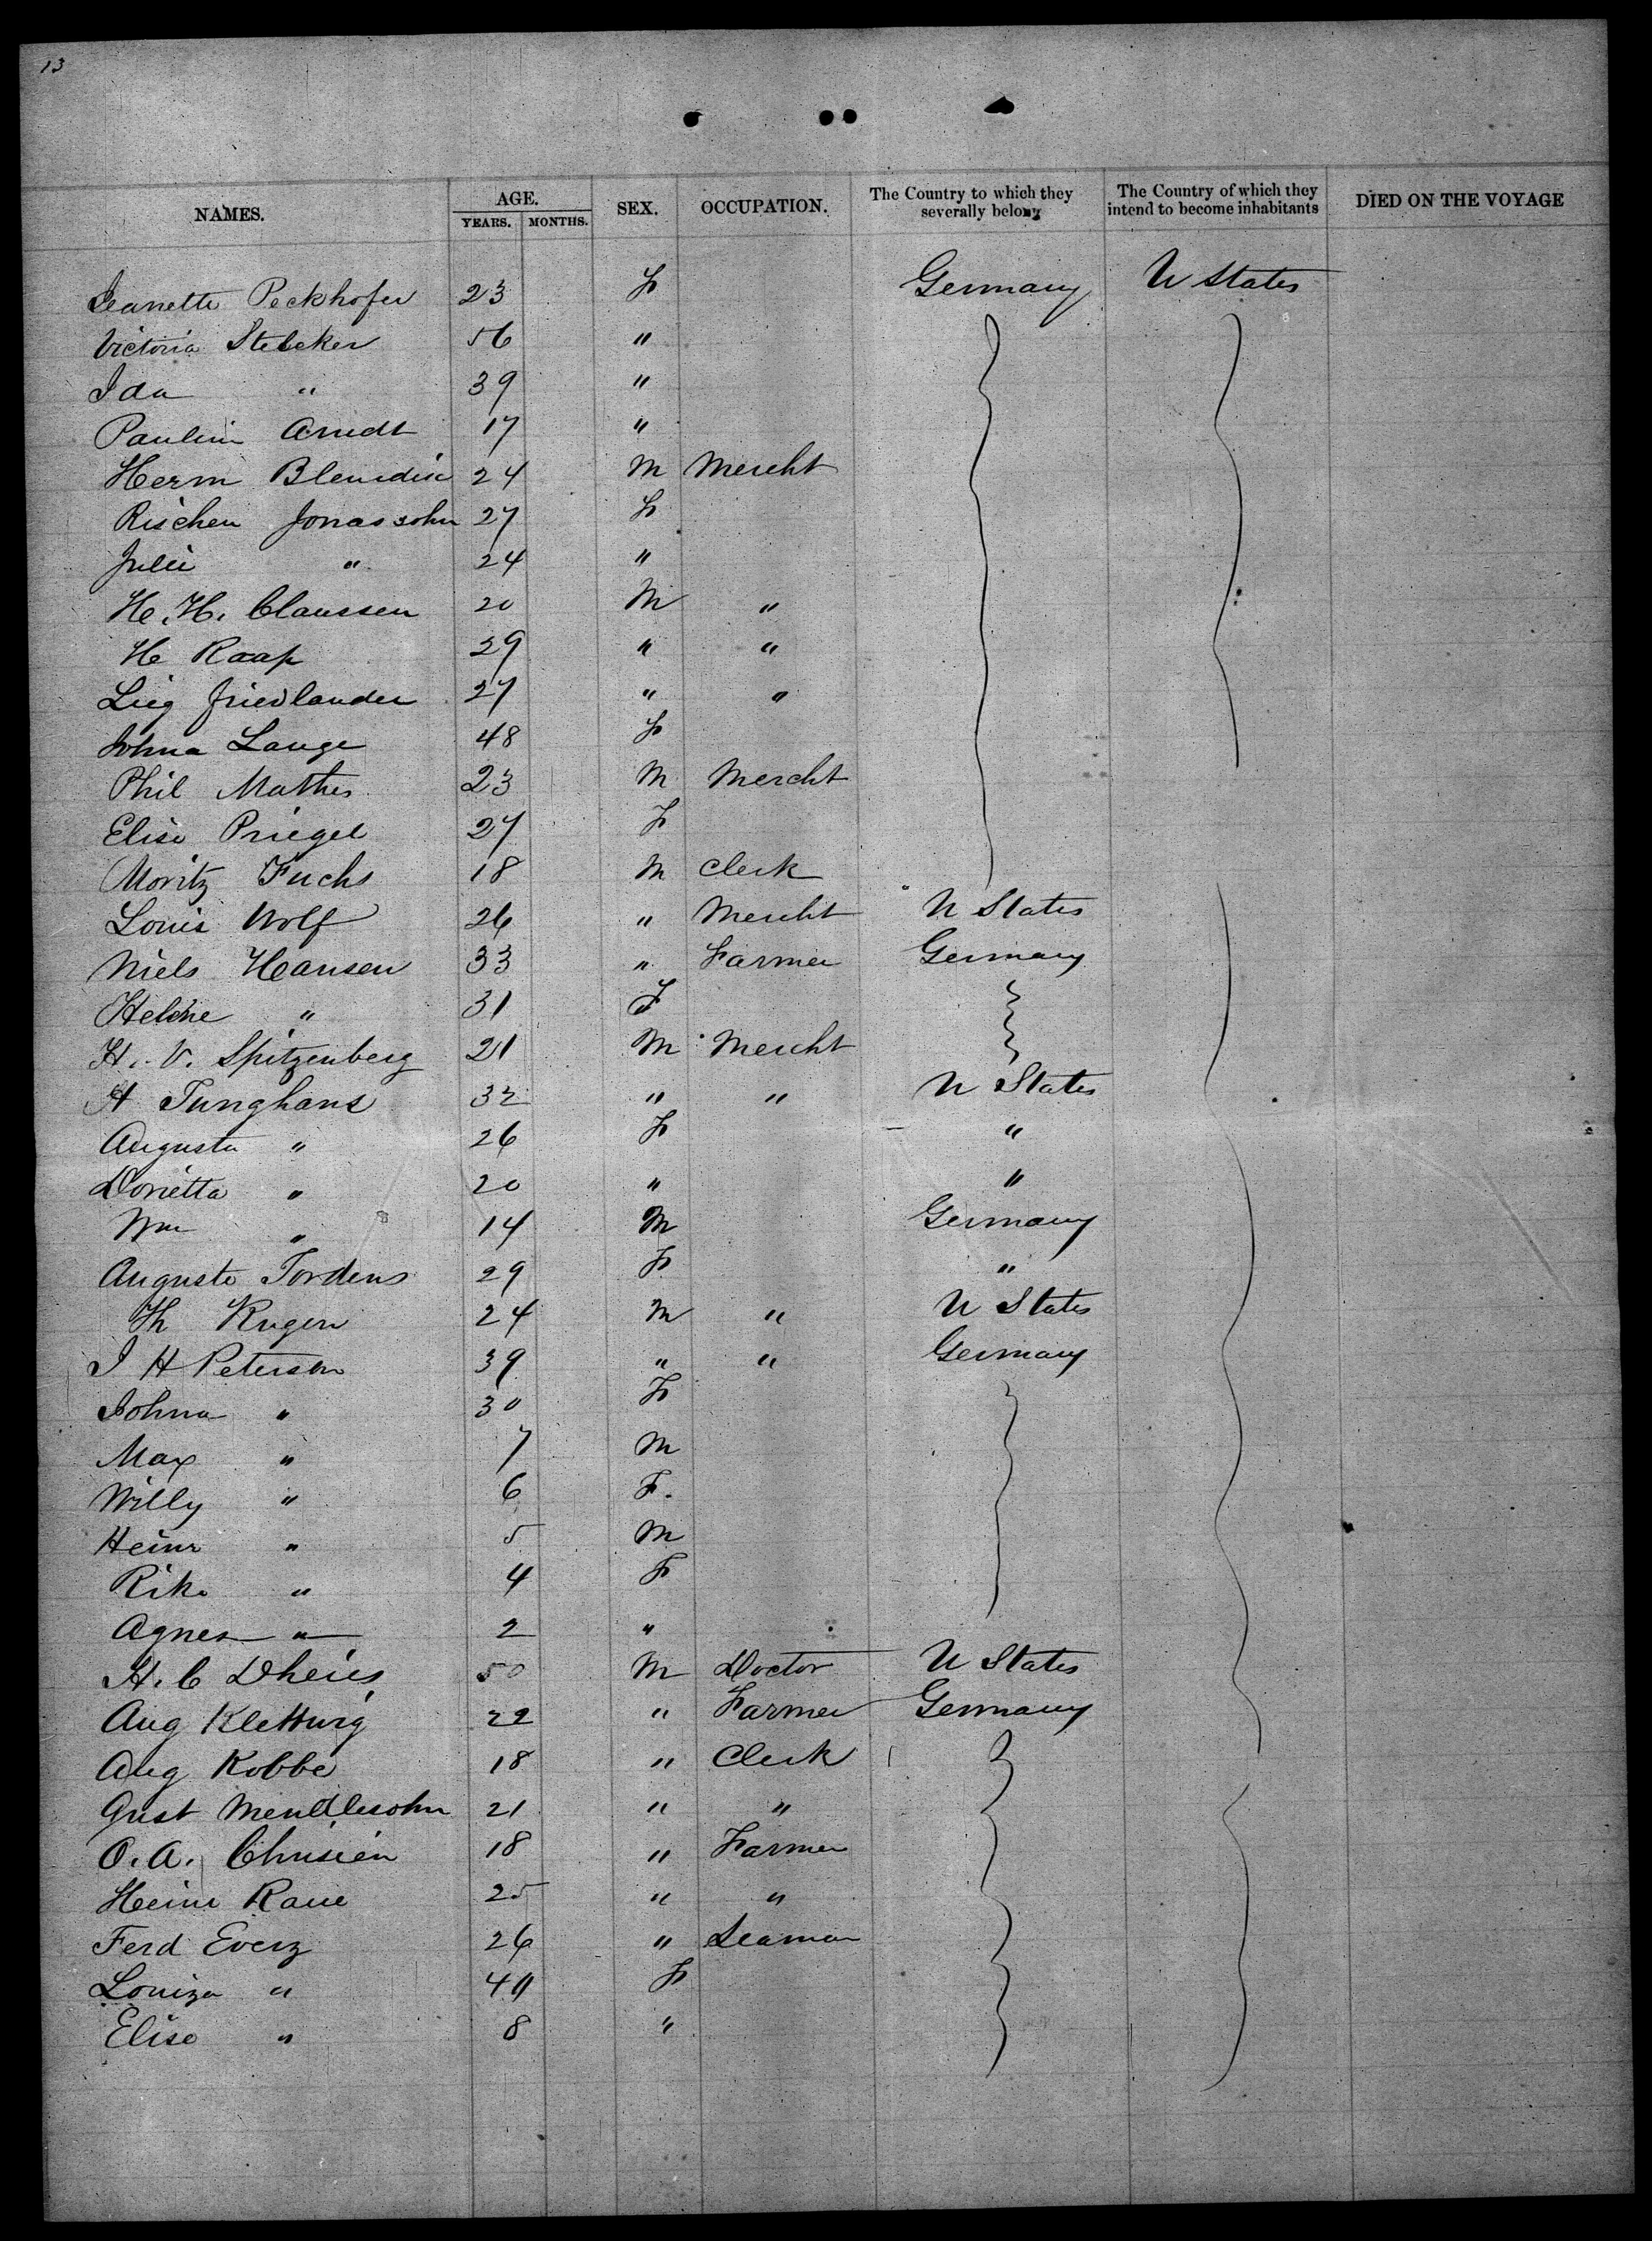 13
NAMES. AGE. YEARS. MONTHS. SEX. OCCUPATION. The Country to which they severally belong The Country of which they intend to become inhabitants DIED ON THE VOYAGE
Jeanette Peckhofer 23 F Germany U States
Victoria Stelcker 56 "
Ida " 39 "
Paulin Arndt 17 "
Herm Blemdix 24 M Mercht
Rischen Jonassohn 27 F
Julie " 24 "
H. H. Claussen 20 M "
H Raap 29 " "
Lig Friedlander 27 " "
Johna Lange 48 F
Phil Mathes 23 M Mercht
Elise Priegel 27 F
Moritz Fuchs 18 M Clerk
Louis Wolf 26 " Mercht U States
Niels Hansen 33 " Farmer Germany
Helene " 31 F
H. V. Spitzenberg 21 M Mercht
H Junghans 32 " " U States
Augusta " 26 F "
Dorietta " 20 " "
Wm " 14 M Germany
Auguste Jordens 29 F "
Th Krugen 24 M " U States
J H Peterson 39 " " Germany
Johna " 30 F
Max " 7 M
Willy " 6 F.
Heinr " 5 M
Rike " 4 F
Agnes " 2 "
H. C Dheus 50 M Doctor U States
Aug Klettwig 22 " Farmer Germany
Aug Kobbe 18 " Clerk
Gust Mendlesohn 21 " "
O. A. Chrisien 18 " Farmer
Heinr Raue 25 " "
Ferd Everz 26 " Seaman
Louiza " 40 F
Elise " 8 "